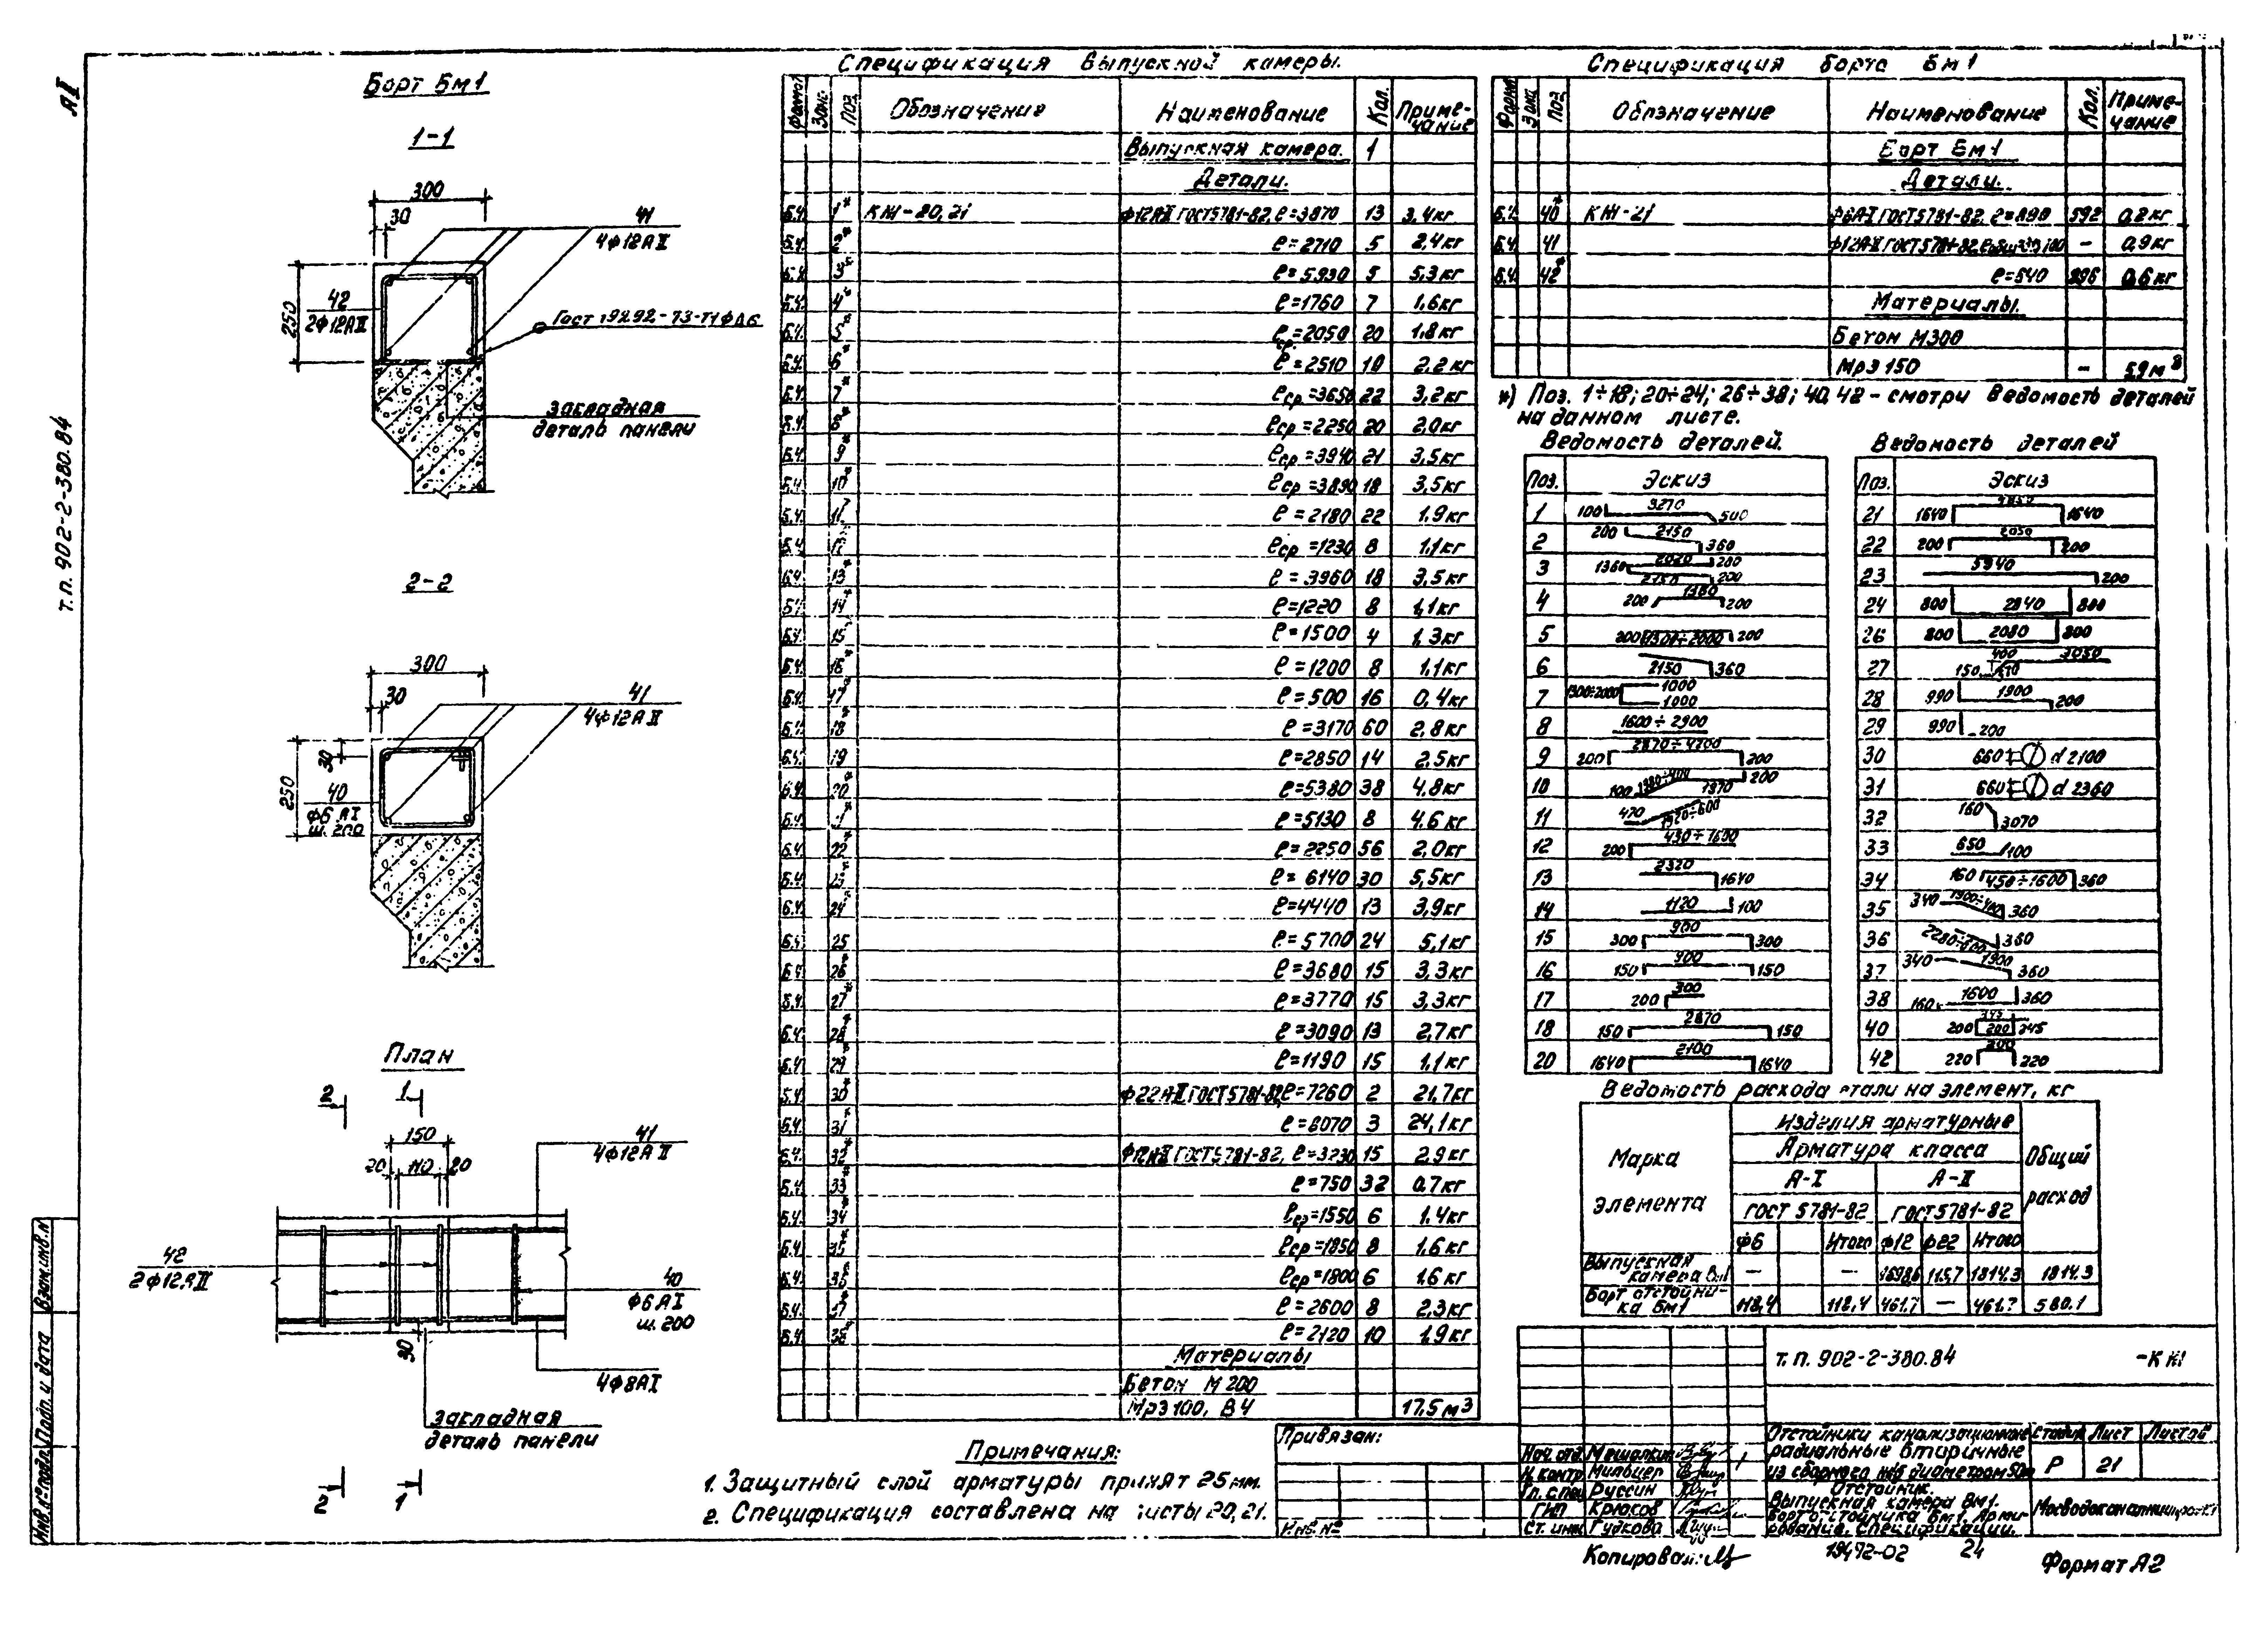 АII
т.п. 902-2-380.84
Борт Бм1
1-1
300
30
41
4ф12АII
250
42
2ф12АII
Гост 19292-73-Т1фΔ6
закладная
деталь панели
2-2
300
30
41
4ф12АII
30
250
40
ф6 АI
ш. 200
План
2 1
150
41
4ф12АII
20 110 20
42
2ф12АII
40
ф6АI
ш. 200
30
4ф8АI
закладная
деталь панели
2 1
Взам.инв.N
Подп. и дата
Инв.N°подл.
Спецификация выпускной камеры.
Формат Зона Поз. Обозначение Наименование Кол. Примечание
Выпускная камера. 1
Детали.
Б.ч. 1* КЖ-20,21 ф12АII ГОСТ 5781-82, ℓ=3870 13 3,4кг
Б.ч. 2* ℓ=2710 5 2,4кг
Б.ч. 3* ℓ=5930 5 5,3кг
Б.ч. 4* ℓ=1760 7 1,6кг
Б.ч. 5* ℓср.=2050 20 1,8кг
Б.ч. 6* ℓ=2510 10 2,2кг
Б.ч. 7* ℓср.=3650 22 3,2кг
Б.ч. 8* ℓср=2250 20 2,0кг
Б.ч. 9* ℓср=3940 21 3,5кг
Б.ч. 10* ℓср=3890 18 3,5кг
Б.ч. 11* ℓ=2180 22 1,9кг
Б.ч. 12* ℓср=1230 8 1,1кг
Б.ч. 13* ℓ=3960 18 3,5кг
Б.ч. 14* ℓ=1220 8 1,1кг
Б.ч. 15* ℓ=1500 4 1,3кг
Б.ч. 16* ℓ=1200 8 1,1кг
Б.ч. 17* ℓ=500 16 0,4кг
Б.ч. 18* ℓ=3170 60 2,8кг
Б.ч. 19 ℓ=2850 14 2,5кг
Б.ч. 20* ℓ=5380 38 4,8кг
Б.ч. 21* ℓ=5130 8 4,6кг
Б.ч. 22* ℓ=2250 56 2,0кг
Б.ч. 23* ℓ=6140 30 5,5кг
Б.ч. 24* ℓ=4440 13 3,9кг
Б.ч. 25 ℓ=5700 24 5,1кг
Б.ч. 26* ℓ=3680 15 3,3кг
Б.ч. 27* ℓ=3770 15 3,3кг
Б.ч. 28* ℓ=3090 13 2,7кг
Б.ч. 29* ℓ=1190 15 1,1кг
Б.ч. 30* ф22АII ГОСТ 5781-82, ℓ=7260 2 21,7кг
Б.ч. 31* ℓ=8070 3 24,1кг
Б.ч. 32* ф12АII ГОСТ 5781-82, ℓ=3230 15 2,9кг
Б.ч. 33* ℓ=750 32 0,7кг
Б.ч. 34* ℓср=1550 6 1,4кг
Б.ч. 35* ℓср=1850 8 1,6кг
Б.ч. 36* ℓср=1800 6 1,6кг
Б.ч. 37* ℓ=2600 8 2,3кг
Б.ч. 38* ℓ=2120 10 1,9кг
Материалы
Бетон М200
Мрз100, В4 17,5м3
Примечания:
1. Защитный слой арматуры принят 25мм.
2. Спецификация составлена на листы 20,21.
Спецификация борта Бм1
Формат Зона Поз. Обозначение Наименование Кол. Примечание
Борт Бм1
Детали.
Б.ч. 40* КЖ-21 ф6А-I ГОСТ 5781-82. ℓ=890 592 0,2кг
Б.ч. 41 ф12АII ГОСТ 5781-82 - 0,9кг
Б.ч. 42* ℓ=640 296 0,6кг
Материалы.
Бетон М300
Мрз 150 - 5,9м3
*) Поз. 1÷18; 20÷24; 26÷38; 40,42 - смотри ведомость деталей
на данном листе.
Ведомость деталей.
Поз. Эскиз
1 100 3270 500
2 200 2150 360
3 1360 2020 200 2150 200
4 200 1360 200
5 200 1300÷2000 200
6 2150 360
7 1300÷2000 1000 1000
8 1600÷2900
9 200 2870÷4200 200
10 100 1370 200
11 470 1520÷600
12 200 430÷1600
13 2320 1640
14 1120 100
15 300 900 300
16 150 900 150
17 200 300
18 150 2870 150
20 1640 2100 1640
Ведомость деталей
Поз. Эскиз
21 1640 1640
22 200 2050 200
23 5940 200
24 800 2840 800
26 800 2080 800
27 150 400 3050
28 990 1900 200
29 990 200
30 660 d 2100
31 660 d 2360
32 160 3070
33 650 100
34 160 450÷1600 360
35 340 360
36 360
37 340 1900 360
38 160 1600 360
40 200 245 200 245
42 220 200 220
Ведомость расхода стали на элемент, кг
Марка элемента
Изделия арматурные
Общий расход
Арматура класса
А-I А-II
ГОСТ 5781-82 ГОСТ 5781-82
ф6 Итого ф12 ф22 Итого
Выпускная камера Вм1 — — 1698,6 115,7 1814,3 1814.3
Борт отстойника Бм1 118,4 118,4 461,7 — 461,7 580.1
Привязан:
Инв.N°
т.п. 902-2-380.84 -КЖ
Нач. отд. Мешалкин
Н.контр Мильцер
Гл. спец Руссин
ГИП Крюков
Ст. инж Гудкова
Отстойники канализационные
радиальные вторичные
из сборного ж/б диаметром 50м
Стадия Лист Листов
Р 21
Отстойник.
Выпускная камера Вм1.
Борт отстойника Бм1. Армирование. Спецификации.
Мосводоканалниипроект
Копировал:
19472-02 24
Формат А2